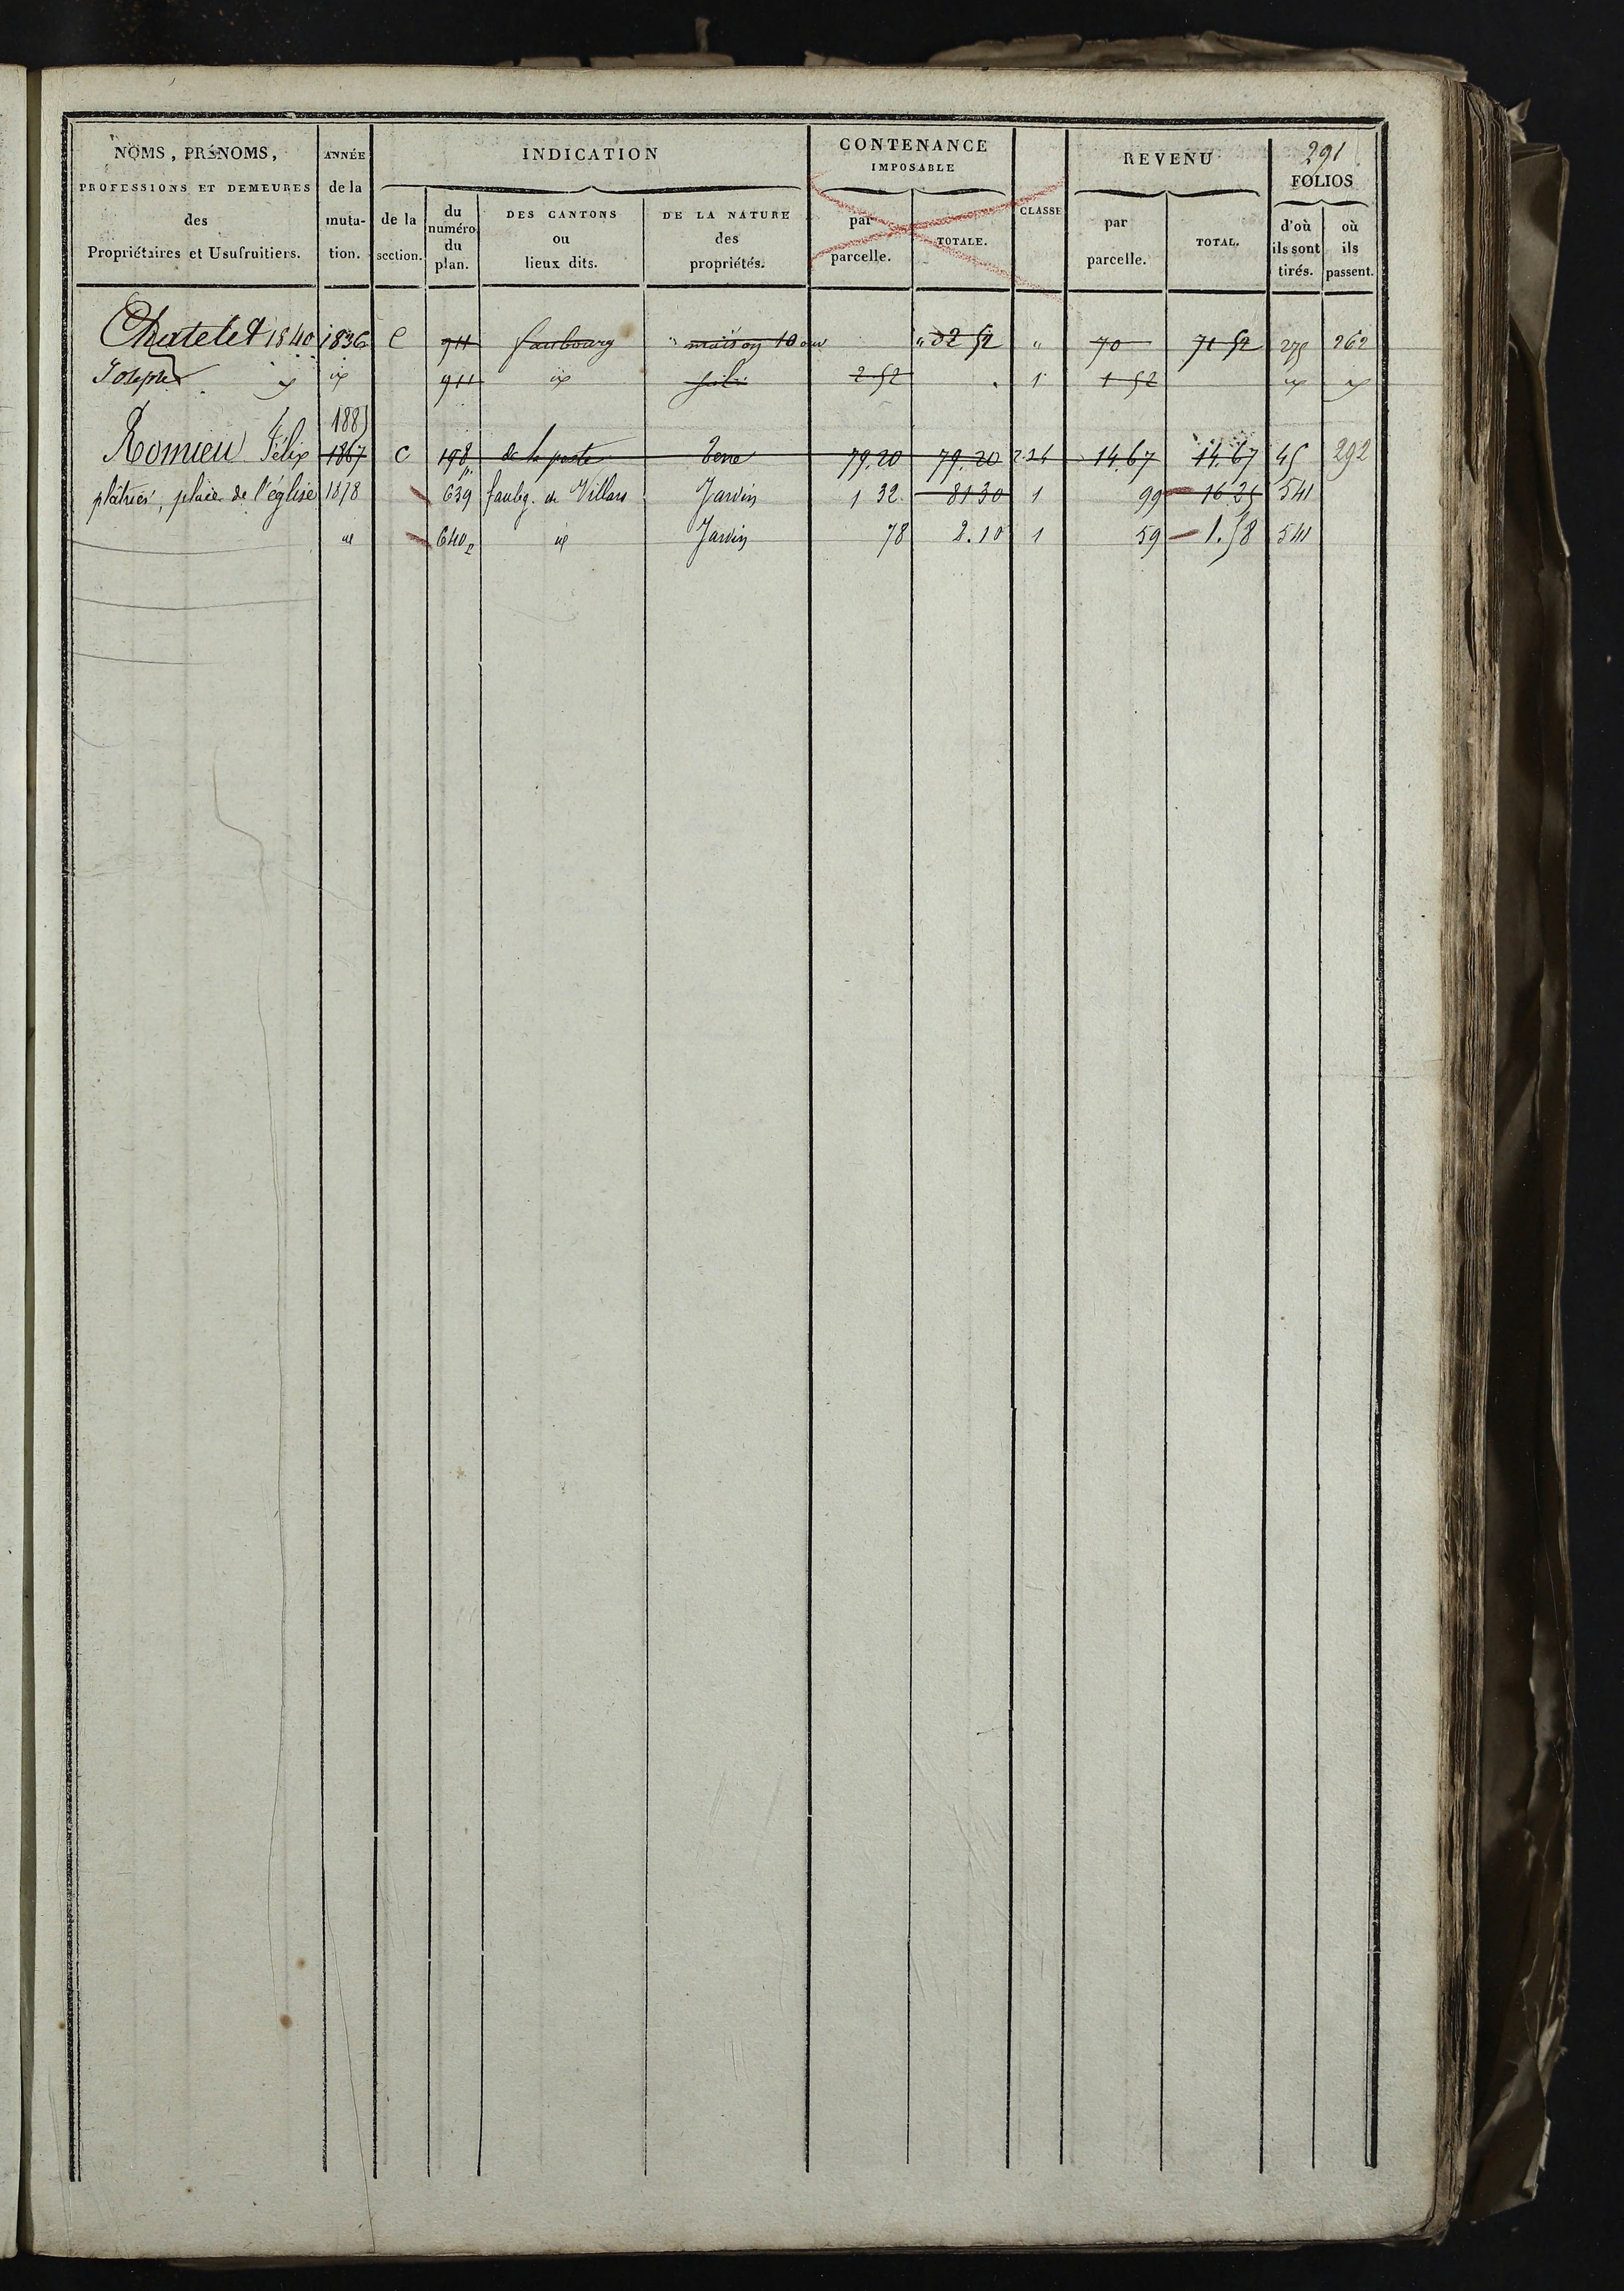 291
NOMS, PRÉNOMS,
PROFESSIONS ET DEMEURES
des
Propriétaires et Usufruitiers.
ANNÉE
de la
muta-
tion.
INDICATION
de la
section.
du
numéro
du
plan.
DES CANTONS
ou
lieux dits.
DE LA NATURE
des
propriétés.
CONTENANCE
IMPOSABLE
par
parcelle.
TOTALE.
CLASSE
REVENU
par
parcelle.
TOTAL.
FOLIOS
d'où
ils sont
tirés.
où
ils
passent.
Chatelet 1840 1836 C 911 faubourg " maison 10 " 02 52 " 70 71 52 275 262
Joseph id 911 id 2 52 1 1 52 id id
1885
Romieu Félix 1867 C 198 de la poste Terre 79.20 79.20 14.67 14.67 45 292
plâtrier, place de l'église 1878 639 faubg. de Villars Jardin 1 32 81 30 1 99 16 25 541
id 640 id Jardin 78 2.10 1 59 1.58 541